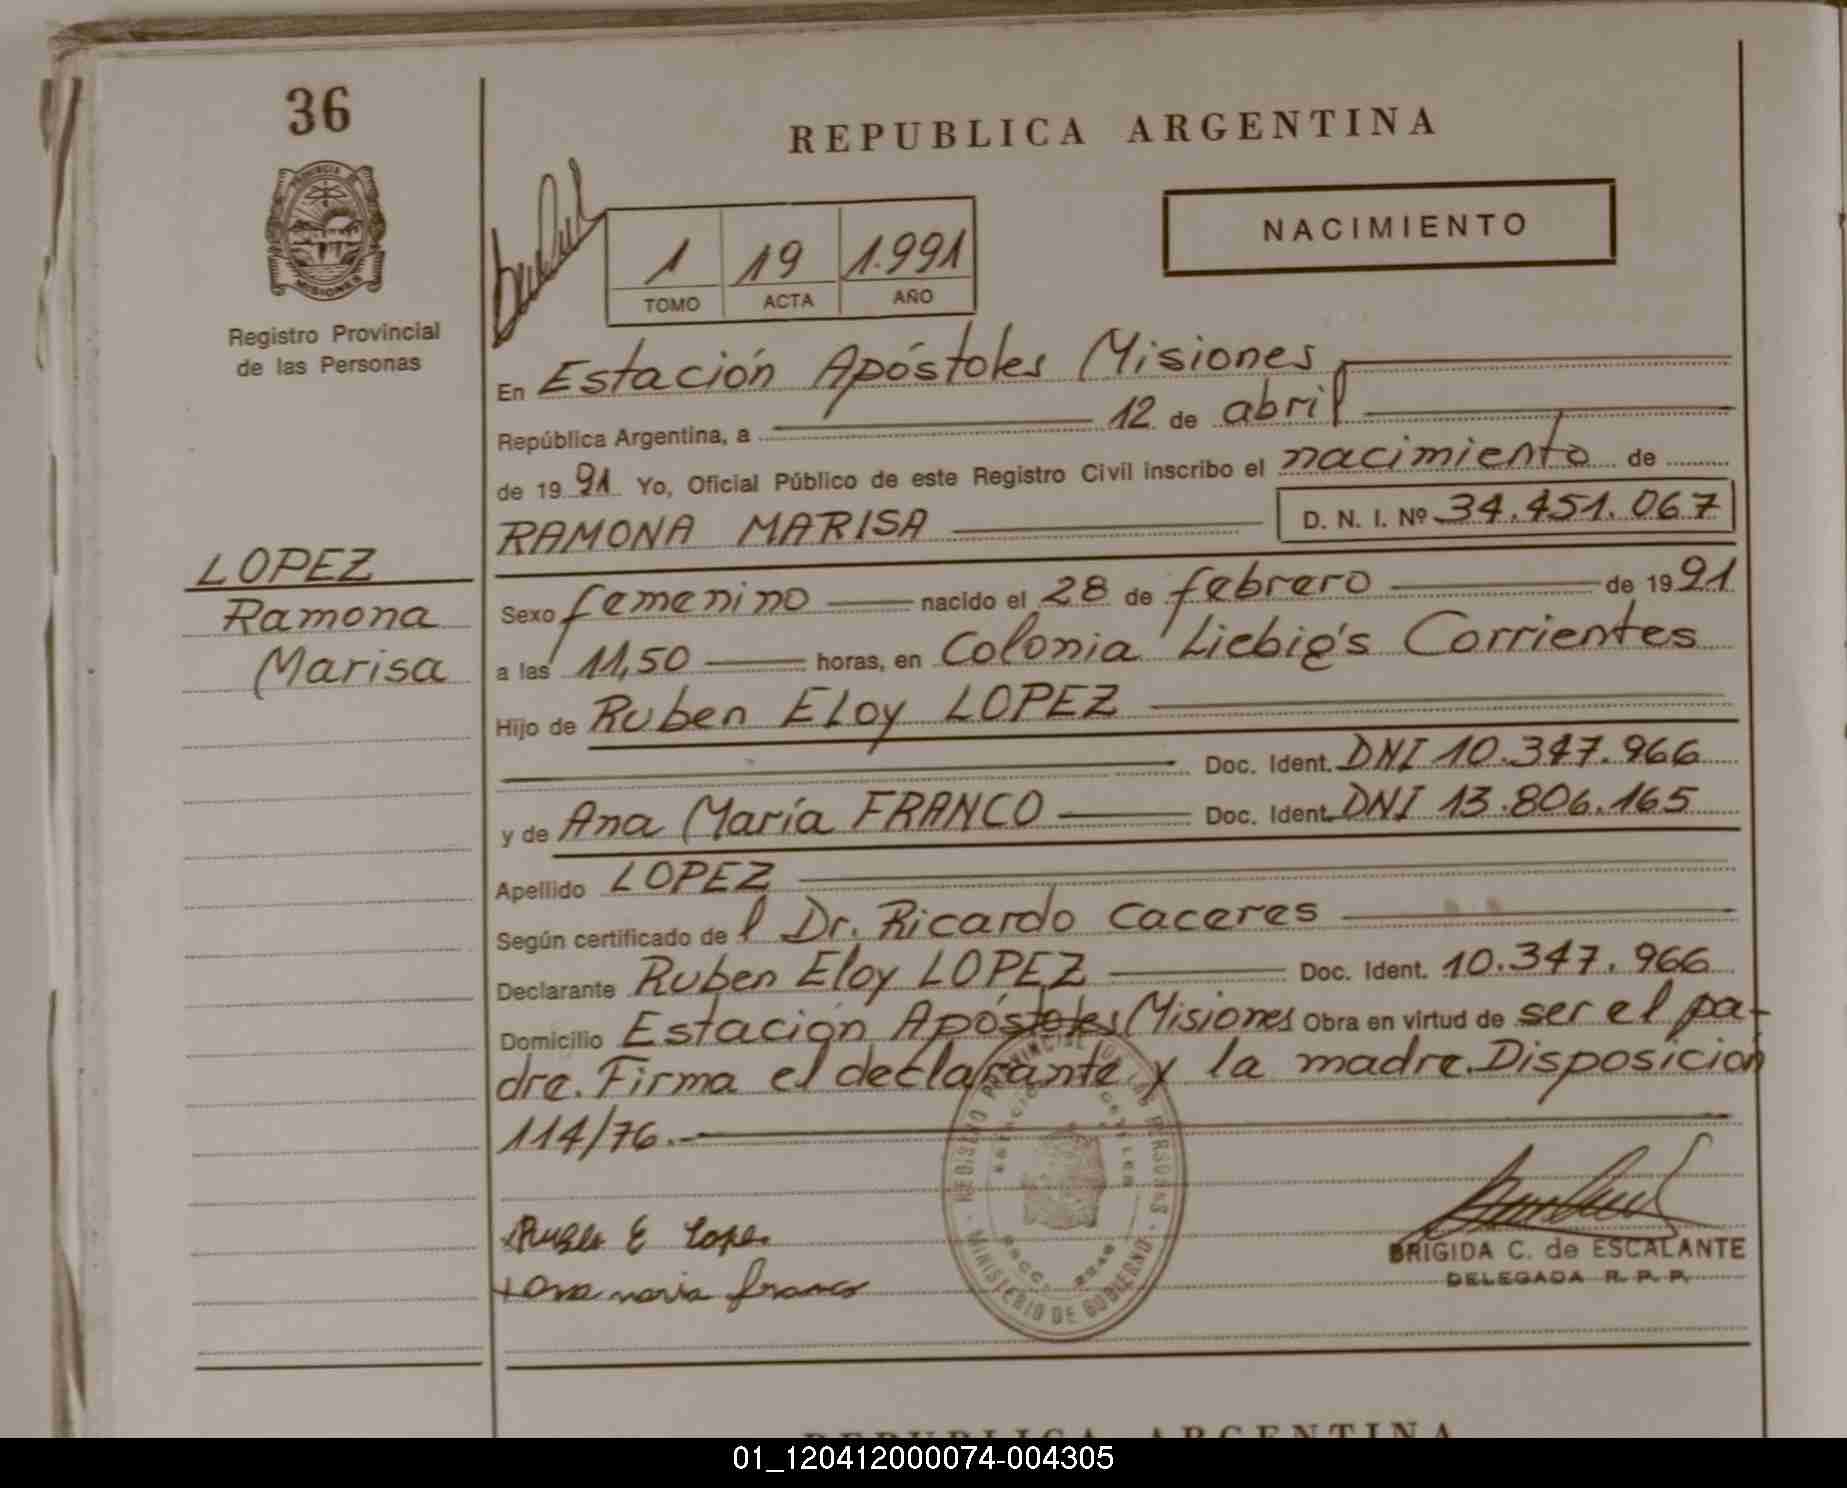 36
REPUBLICA ARGENTINA
PROVINCIA DE
MISIONES
NACIMIENTO
1 19 1.991
TOMO ACTA AÑO
Registro Provincial
de las Personas
En Estación Apóstoles Misiones
República Argentina, a 12 de abril
de 1991 Yo, Oficial Público de este Registro Civil inscribo el nacimiento de
RAMONA MARISA D. N. I. Nº 34.451.067
LOPEZ
Ramona
Marisa
Sexo femenino nacido el 28 de febrero de 1991
a las 11,50 horas, en Colonia Liebig's Corrientes
Hijo de Ruben Eloy LOPEZ
Doc. Ident. DNI 10.347.966
y de Ana María FRANCO Doc. Ident. DNI 13.806.165
Apellido LOPEZ
Según certificado de l Dr. Ricardo Caceres
Declarante Ruben Eloy LOPEZ Doc. Ident. 10.347.966
Domicilio Estación Apóstoles Misiones Obra en virtud de ser el pa-
dre. Firma el declarante y la madre. Disposición
114/76.-
REGISTRO PROVINCIAL DE LAS PERSONAS
MINISTERIO DE GOBIERNO
Ruben E Lopez
Ana maria franco
BRIGIDA C. de ESCALANTE
DELEGADA R. P. P.
REPUBLICA ARGENTINA
01_120412000074-004305